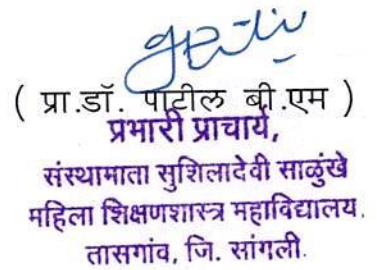 ( प्रा.डॉ. पाटील बी.एम )
प्रभारी प्राचार्य,
संस्थामाता सुशिलादेवी साळुंखे
महिला शिक्षणशास्त्र महाविद्यालय.
तासगांव, जि. सांगली.